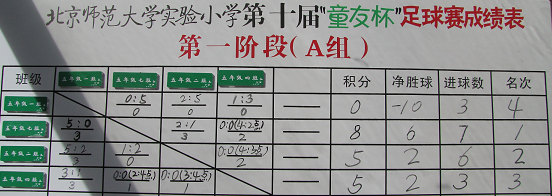 北京师范大学实验小学第十届"童友杯"足球赛成绩表
第一阶段(A组)
班级 五年级一班 五年级七班 五年级二班 五年级四班 — 积分 净胜球 进球数 名次
五年级一班 0:5 0 2:5 0 1:3 0 — 0 -10 3 4
五年级七班 5:0 3 2:1 3 0:0(4:2点) 2 — 8 6 7 1
五年级二班 5:2 3 1:2 0 0:0(4:3点) 2 — 5 2 6 2
五年级四班 3:1 3 0:0(2:4点) 1 0:0(3:4点) 1 — 5 2 3 3